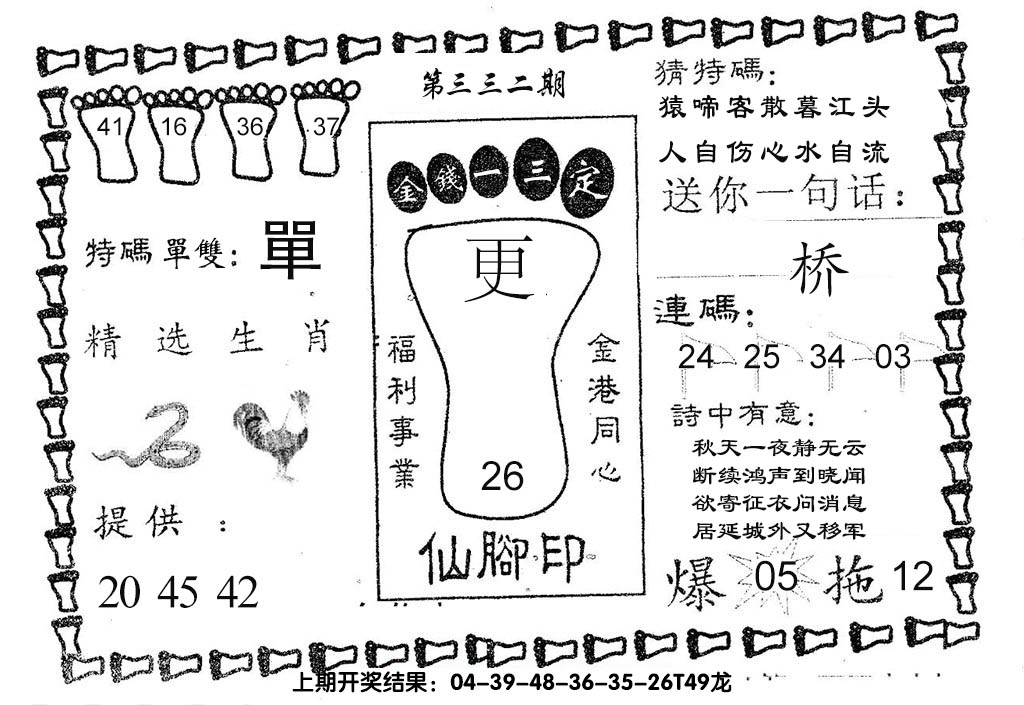 第三三二期
41 16 36 37
特碼單雙: 單
精选生肖
提供:
20 45 42
金錢一三定
更
福利事業
金港同心
26
仙腳印
猜特碼:
猿啼客散暮江头
人自伤心水自流
送你一句话:
桥
連碼:
24 25 34 03
詩中有意:
秋天一夜静无云
断续鸿声到晓闻
欲寄征衣问消息
居延城外又移军
爆 05 拖 12
上期开奖结果：04-39-48-36-35-26T49龙